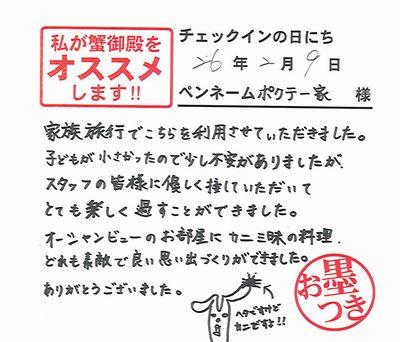 私が蟹御殿を
オススメ
します!!
チェックインの日にち
26年2月9日
ペンネームポクテー家 様
家族旅行でこちらを利用させていただきました。
子どもが小さかったので少し不安がありましたが、
スタッフの皆様に優しく接していただいて
とても楽しく過すことができました。
オーシャンビューのお部屋にカニミ味の料理、
どれも素敵で良い思い出づくりができました。
ありがとうございました。
ヘタですけど
カニですよ!!
お墨つき